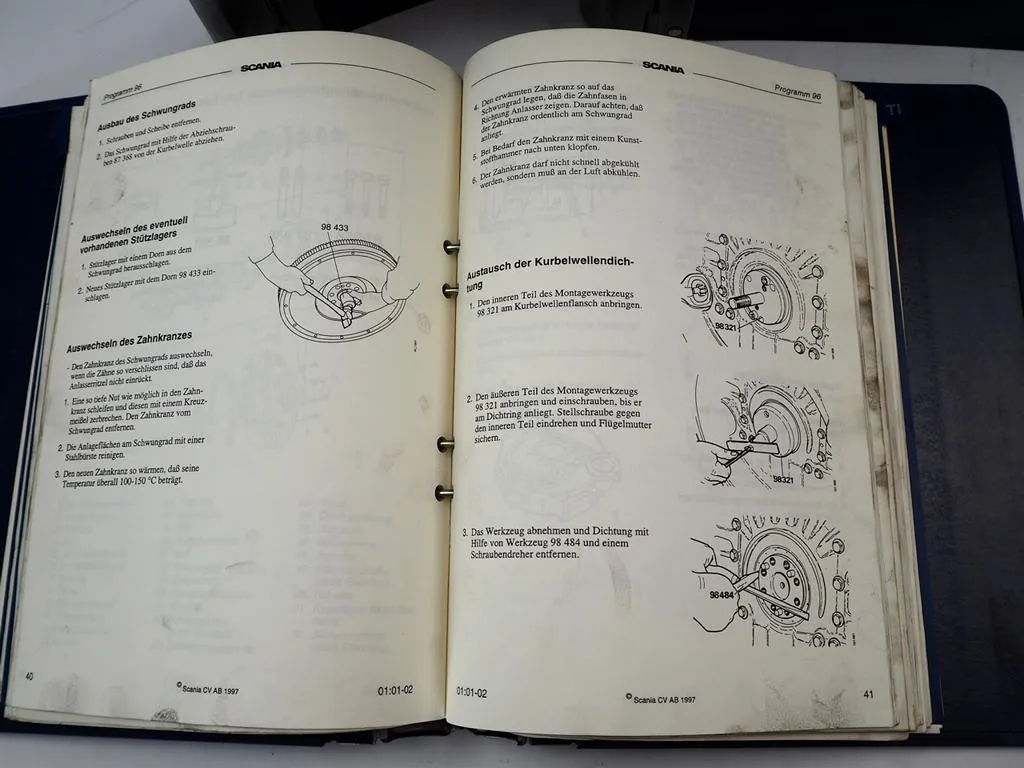 SCANIA
Programm 96
Ausbau des Schwungrads
1. Schrauben und Scheibe entfernen.
2. Das Schwungrad mit Hilfe der Abziehschrau-
ben 87 368 von der Kurbelwelle abziehen.
Auswechseln des eventuell
vorhandenen Stützlagers
1. Stützlager mit einem Dorn aus dem
Schwungrad herausschlagen.
2. Neues Stützlager mit dem Dorn 98 433 ein-
schlagen.
98 433
Auswechseln des Zahnkranzes
- Den Zahnkranz des Schwungrads auswechseln,
wenn die Zähne so verschlissen sind, daß das
Anlasserritzel nicht einrückt.
1. Eine so tiefe Nut wie möglich in den Zahn-
kranz schleifen und diesen mit einem Kreuz-
meißel zerbrechen. Den Zahnkranz vom
Schwungrad entfernen.
2. Die Anlageflächen am Schwungrad mit einer
Stahlbürste reinigen.
3. Den neuen Zahnkranz so wärmen, daß seine
Temperatur überall 100-150 °C beträgt.
40
© Scania CV AB 1997
01:01-02
SCANIA
Programm 96
4. Den erwärmten Zahnkranz so auf das
Schwungrad legen, daß die Zahnfasen in
Richtung Anlasser zeigen. Darauf achten, daß
der Zahnkranz ordentlich am Schwungrad
anliegt.
5. Bei Bedarf den Zahnkranz mit einem Kunst-
stoffhammer nach unten klopfen.
6. Der Zahnkranz darf nicht schnell abgekühlt
werden, sondern muß an der Luft abkühlen.
Austausch der Kurbelwellendich-
tung
1. Den inneren Teil des Montagewerkzeugs
98 321 am Kurbelwellenflansch anbringen.
98321
2. Den äußeren Teil des Montagewerkzeugs
98 321 anbringen und einschrauben, bis er
am Dichtring anliegt. Stellschraube gegen
den inneren Teil eindrehen und Flügelmutter
sichern.
98321
3. Das Werkzeug abnehmen und Dichtung mit
Hilfe von Werkzeug 98 484 und einem
Schraubendreher entfernen.
98484
01:01-02
© Scania CV AB 1997
41
TI